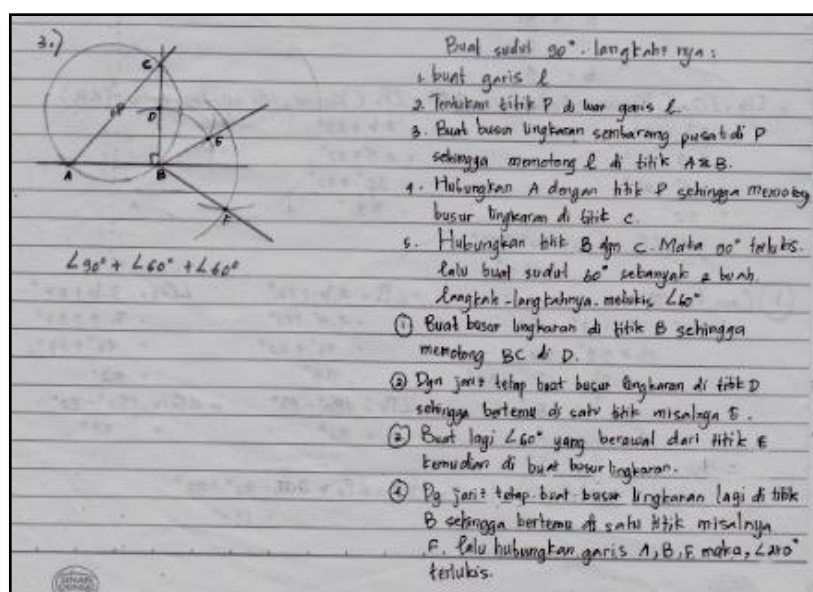 3.)
C
P
D
E
A
B
F
∠90° + ∠60° + ∠60°
Buat sudut 90°. langkah² nya :
1. buat garis l
2. Tentukan titik P di luar garis l.
3. Buat busur lingkaran sembarang pusat di P
sehingga memotong l di titik A & B.
4. Hubungkan A dengan titik P sehingga memotong
busur lingkaran di titik C.
5. Hubungkan titik B dgn C. Maka 90° terlukis.
lalu buat sudut 60° sebanyak 2 buah.
langkah-langkahnya melukis ∠60°
① Buat busur lingkaran di titik B sehingga
memotong BC di D.
② Dgn jari² tetap buat busur lingkaran di titik D
sehingga bertemu di satu titik misalnya E.
③ Buat lagi ∠60° yang berawal dari titik E
kemudian di buat busur lingkaran.
④ Dg jari² tetap buat busur lingkaran lagi di titik
B sehingga bertemu di satu titik misalnya
F. lalu hubungkan garis A, B, F maka, ∠210°
terlukis.
SINAR
DUNIA